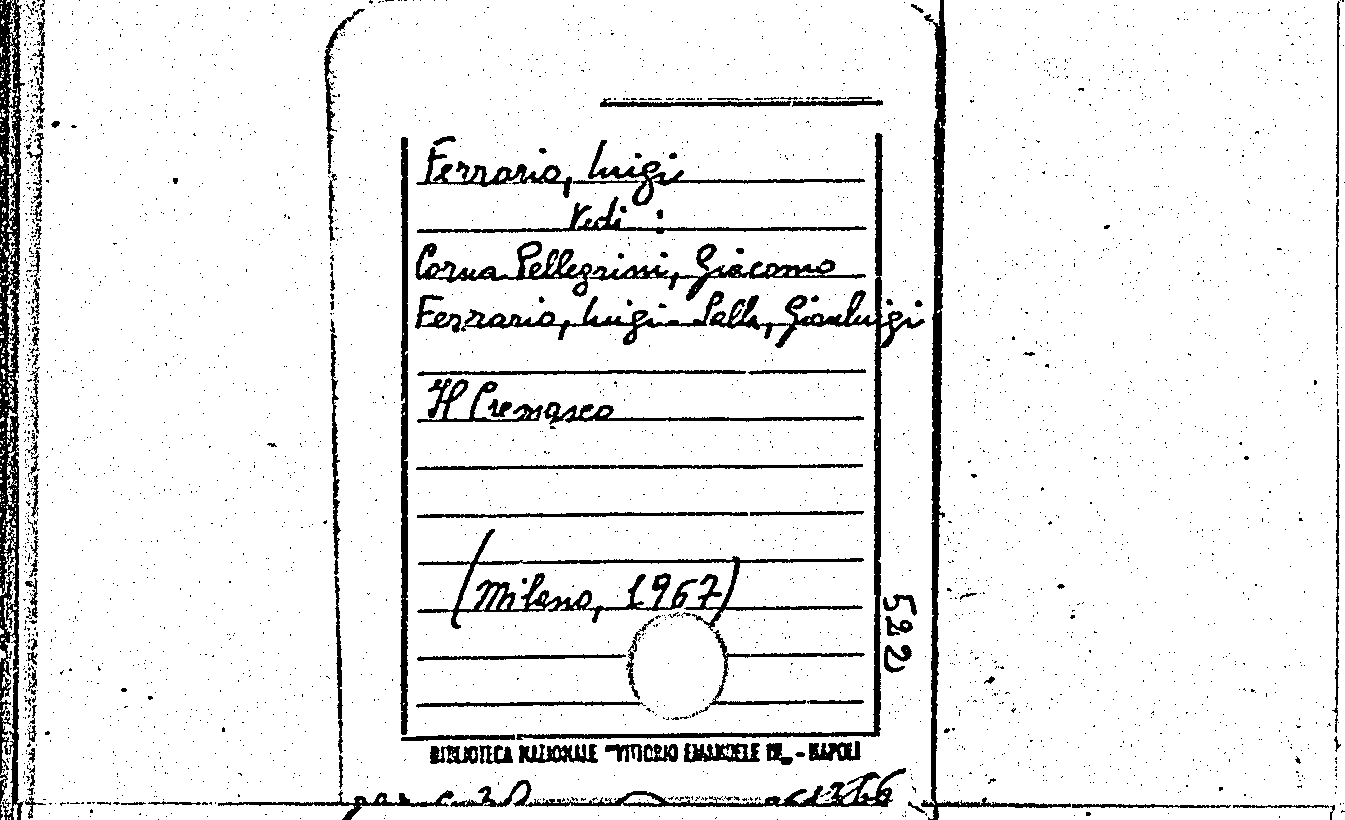 Ferrario, Luigi
Vedi :
Corna Pellegrini, Giacomo
Ferrario, Luigi - Salla, Gianluigi
Il Cremasco
(Milano, 1967)
522
BIBLIOTECA NAZIONALE "VITTORIO EMANUELE III" - NAPOLI